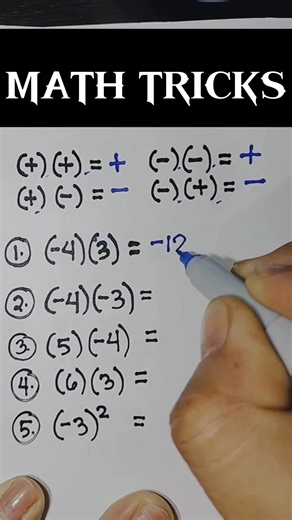 MATH TRICKS
(+) (+) = + (-) (-) = +
(+) (-) = - (-) (+) = -
1. (-4)(3) = -12
2. (-4)(-3) =
3. (5)(-4) =
4. (6)(3) =
5. (-3)² =